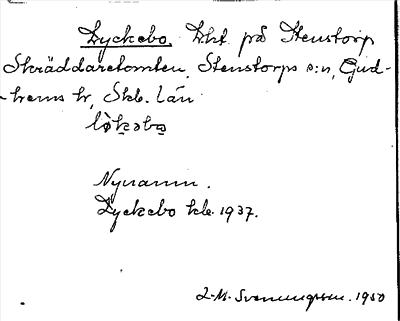 Lyckebo. Lht på Stenstorp
Skräddaretomten, Stenstorps s:n, Gud-
hems hr, Skb. län
Nynamn.
Lyckebo kbl. 1937.
L-M. Svenungsson. 1950